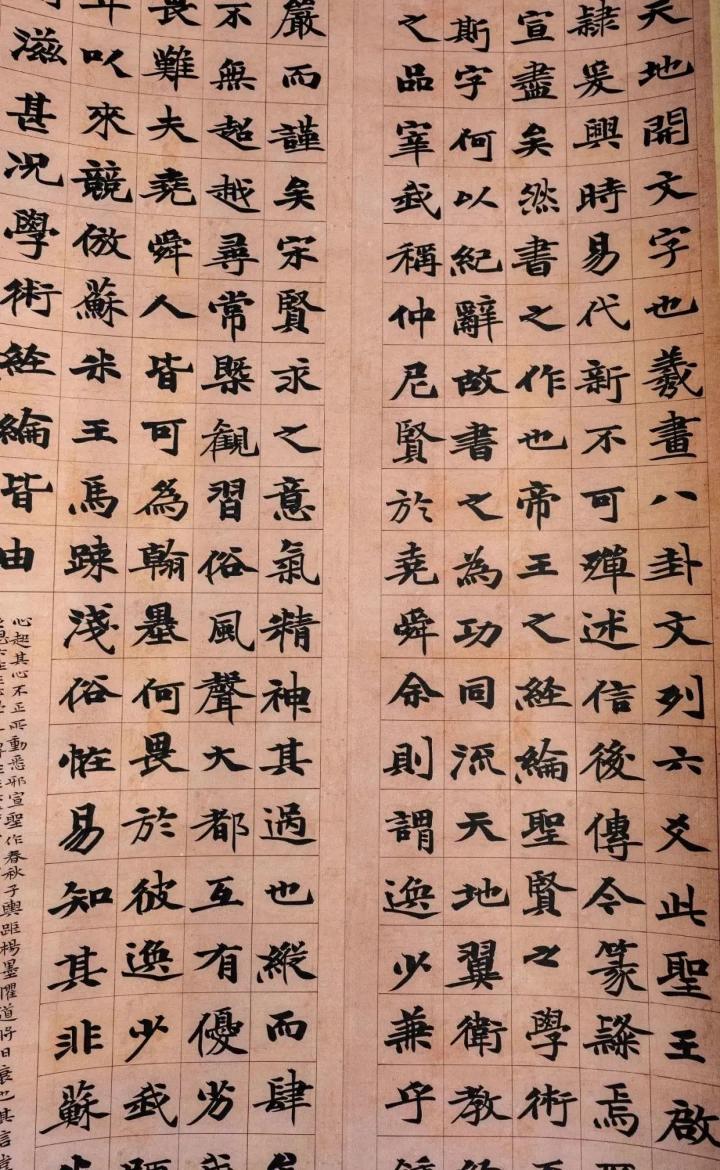 天地開文字也羲畫八卦文列六爻此聖王啟
隸爰興時易代新不可殫述信後傳今篆隸焉
宣盡矣然書之作也帝王之經綸聖賢之學術
斯字何以紀辭故書之為功同流天地翼衛教
之品宰我稱仲尼賢於堯舜余則謂逸少兼乎
嚴而謹矣宋賢求之意氣精神其過也縱而肆
不無超越尋常槩觀習俗風聲大都互有優劣
畏難夫堯舜人皆可為翰墨何畏於彼逸少我
年以來競倣蘇米王馬疎淺俗怪易知其非蘇
滋甚况學術經綸皆由
心起其心不正所動悉邪宣聖作春秋子輿距楊墨懼道將日衰也其言